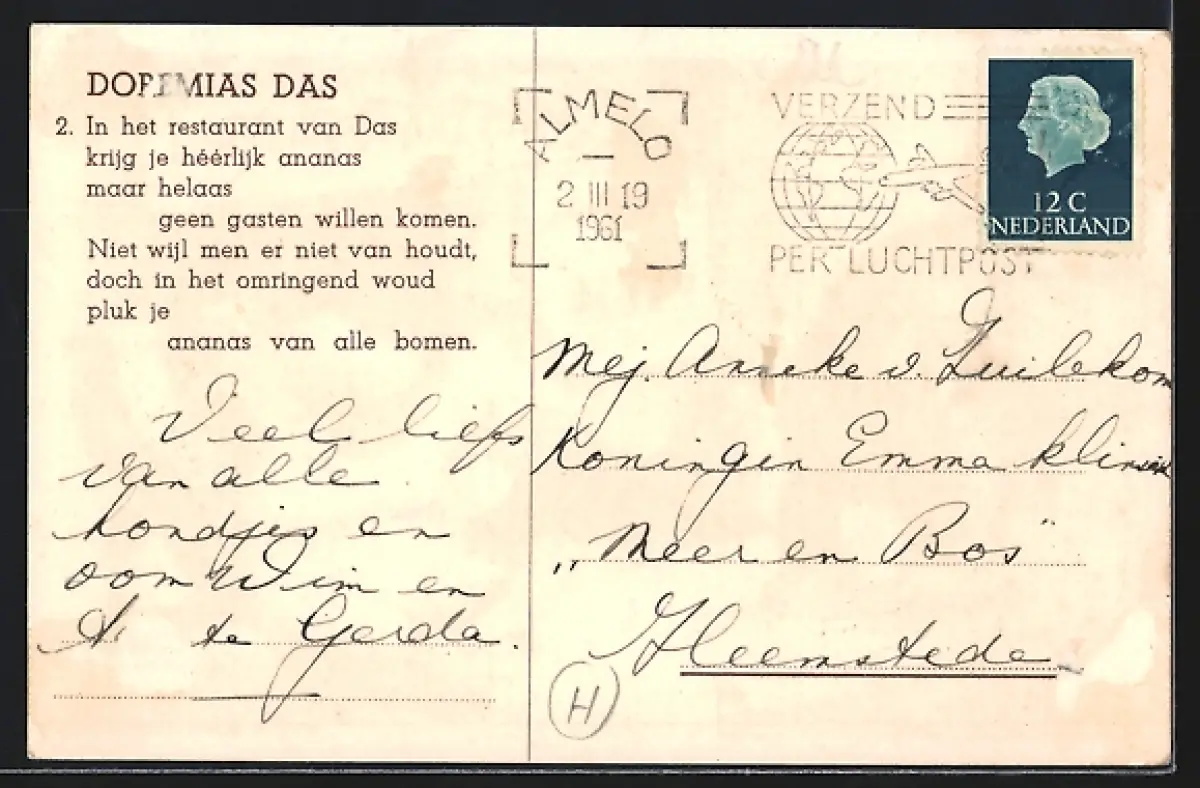 DOREMIAS DAS
2. In het restaurant van Das
krijg je héérlijk ananas
maar helaas
geen gasten willen komen.
Niet wijl men er niet van houdt,
doch in het omringend woud
pluk je
ananas van alle bomen.
Veel liefs
van alle
hondjes en
oom Wim en
te Gerda.
ALMELO
2 III 19
1961
VERZEND
PER LUCHTPOST
12 C
NEDERLAND
Mej. Anneke v. Zuilekom
Koningin Emma kliniek
„Meer en Bos"
Heemstede
H